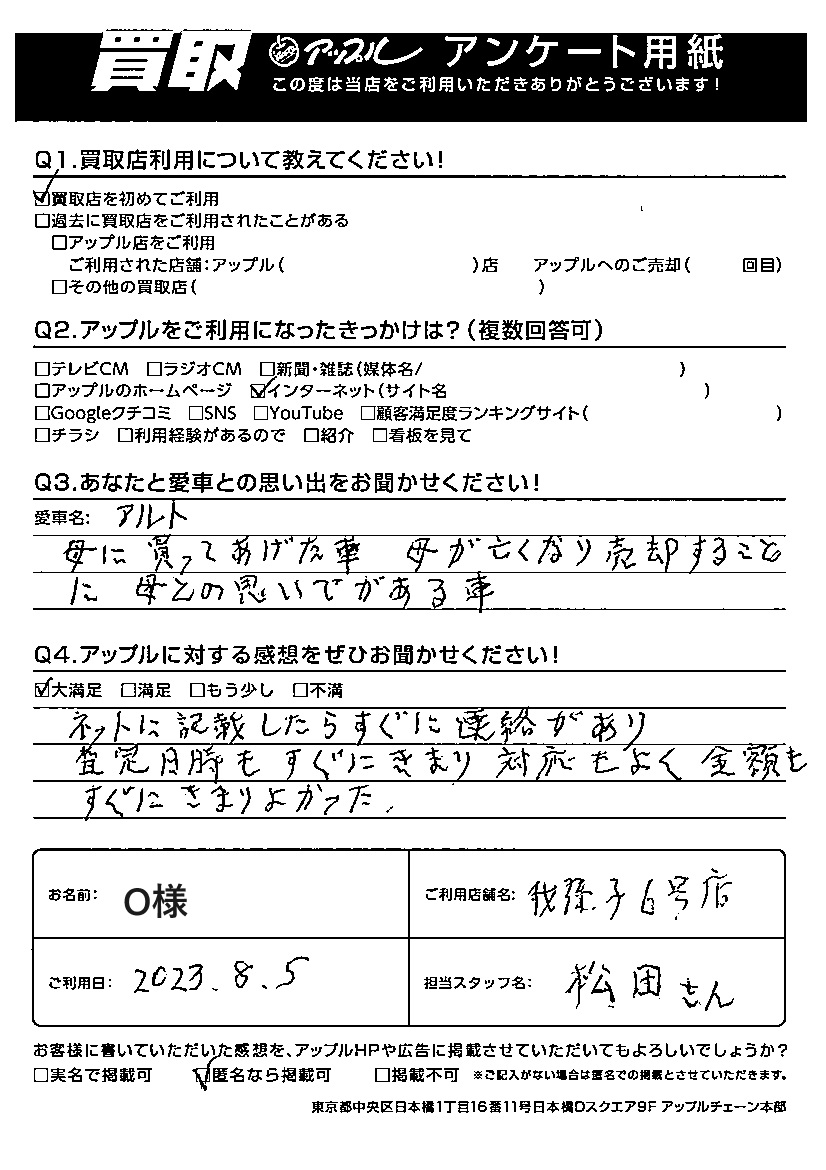 買取 アップル アンケート用紙
この度は当店をご利用いただきありがとうございます!
Q1.買取店利用について教えてください!
☑買取店を初めてご利用
□過去に買取店をご利用されたことがある
□アップル店をご利用
ご利用された店舗:アップル( )店 アップルへのご売却( 回目)
□その他の買取店( )
Q2.アップルをご利用になったきっかけは?(複数回答可)
□テレビCM □ラジオCM □新聞・雑誌(媒体名/ )
□アップルのホームページ ☑インターネット(サイト名 )
□Googleクチコミ □SNS □YouTube □顧客満足度ランキングサイト( )
□チラシ □利用経験があるので □紹介 □看板を見て
Q3.あなたと愛車との思い出をお聞かせください!
愛車名: アルト
母に買ってあげた車 母が亡くなり売却すること
に 母との思いでがある車
Q4.アップルに対する感想をぜひお聞かせください!
☑大満足 □満足 □もう少し □不満
ネットに記載したらすぐに連絡があり
査定日時もすぐにきまり 対応もよく 金額も
すぐにきまりよかった.
お名前: O様 ご利用店舗名: 我孫子6号店
ご利用日: 2023.8.5 担当スタッフ名: 松田さん
お客様に書いていただいた感想を、アップルHPや広告に掲載させていただいてもよろしいでしょうか?
□実名で掲載可 ☑匿名なら掲載可 □掲載不可 ※ご記入がない場合は匿名での掲載とさせていただきます。
東京都中央区日本橋1丁目16番11号日本橋Dスクエア9F アップルチェーン本部